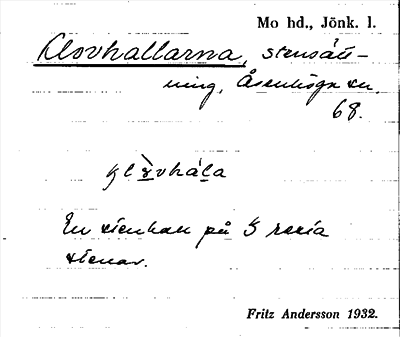 Mo hd., Jönk. l.
Klovhallarna, stensätt-
ning, Åsenhöga sn.
68.
klòvhála
En stenhall på 3 resta
stenar.
Fritz Andersson 1932.